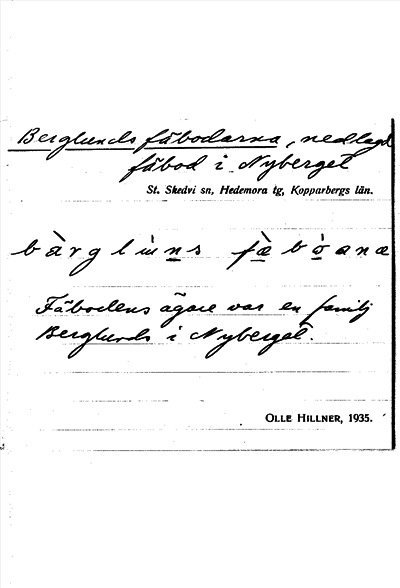 Berglunds fäbodarna, nedlagd
fäbod i Nyberget
St. Skedvi sn, Hedemora tg, Kopparbergs län.
bàrgḷùns fæ̀bọana
Fäbodens ägare var en familj
Berglunds i Nyberget.
OLLE HILLNER, 1935.